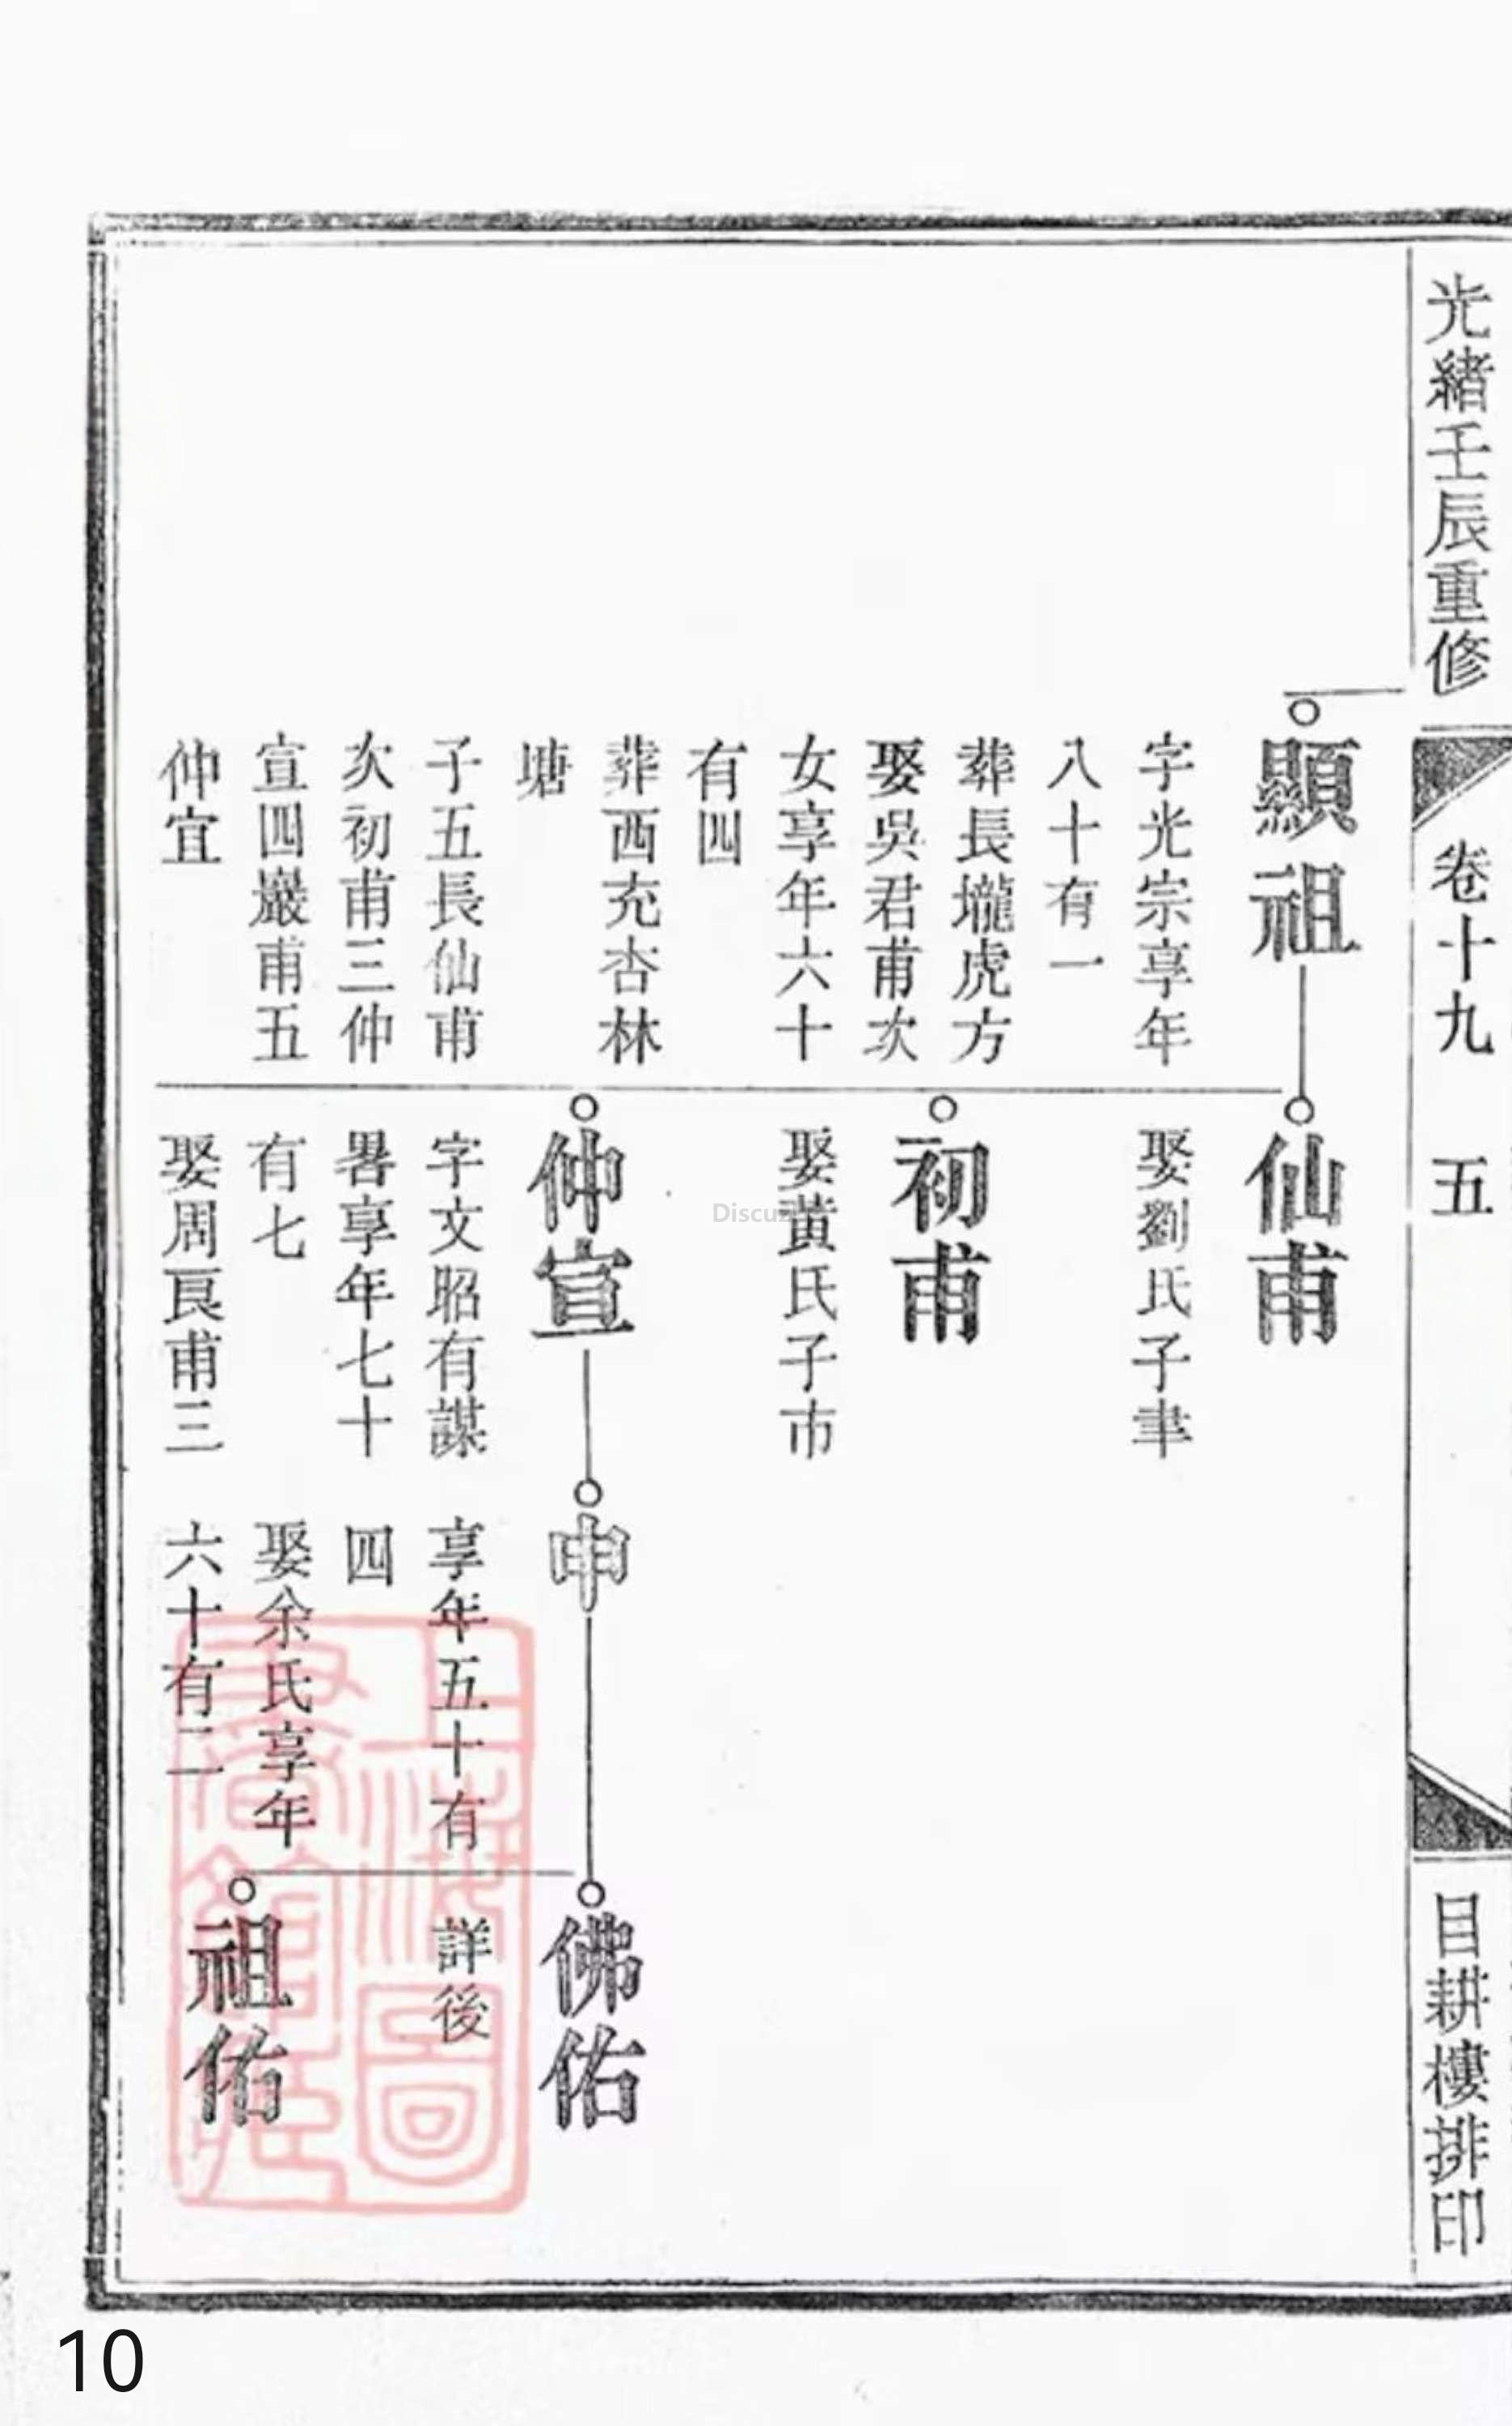 光緒壬辰重修
卷十九 五
目耕樓排印
顯祖
字光宗享年
八十有一
葬長壠虎方
娶吳君甫次
女享年六十
有四
葬西充杏林
塘
子五長仙甫
次初甫三仲
宣四巖甫五
仲宜
仙甫
娶劉氏子聿
初甫
娶黃氏子市
仲宣
字文昭有謀
畧享年七十
有七
娶周艮甫三
申
享年五十有
四
娶余氏享年
六十有二
佛佑
詳後
祖佑
上海圖
書館藏
Discuz
10